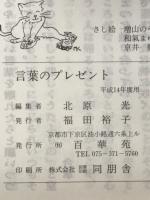 さし絵 増山の
和氣ま
京井
言葉のプレゼント
平成14年度用
編集者 北原光
発行者 福田裕子
京都市下京区油小路通六条上ル
発行所 ㈲百華苑
TEL 075-371-5760
印刷所 株式会社 同朋舎